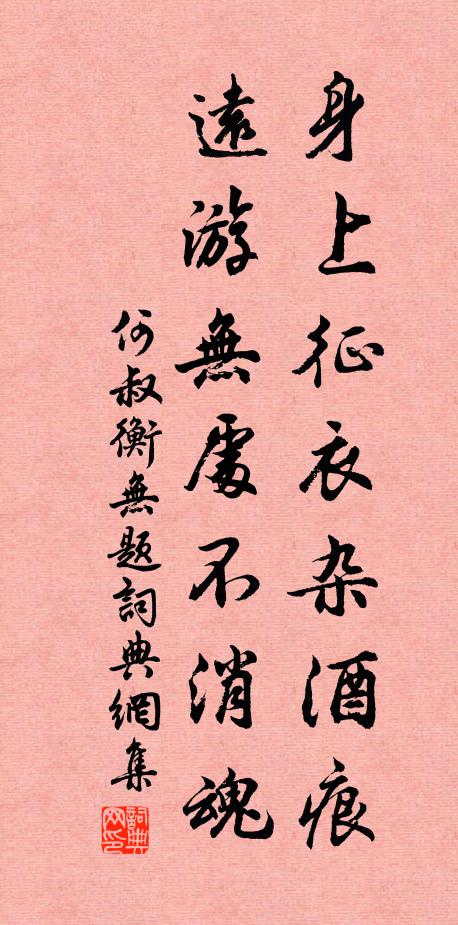 身上征衣杂酒痕
遠游無處不消魂
何叔衡無題詞典網集
詞典網印